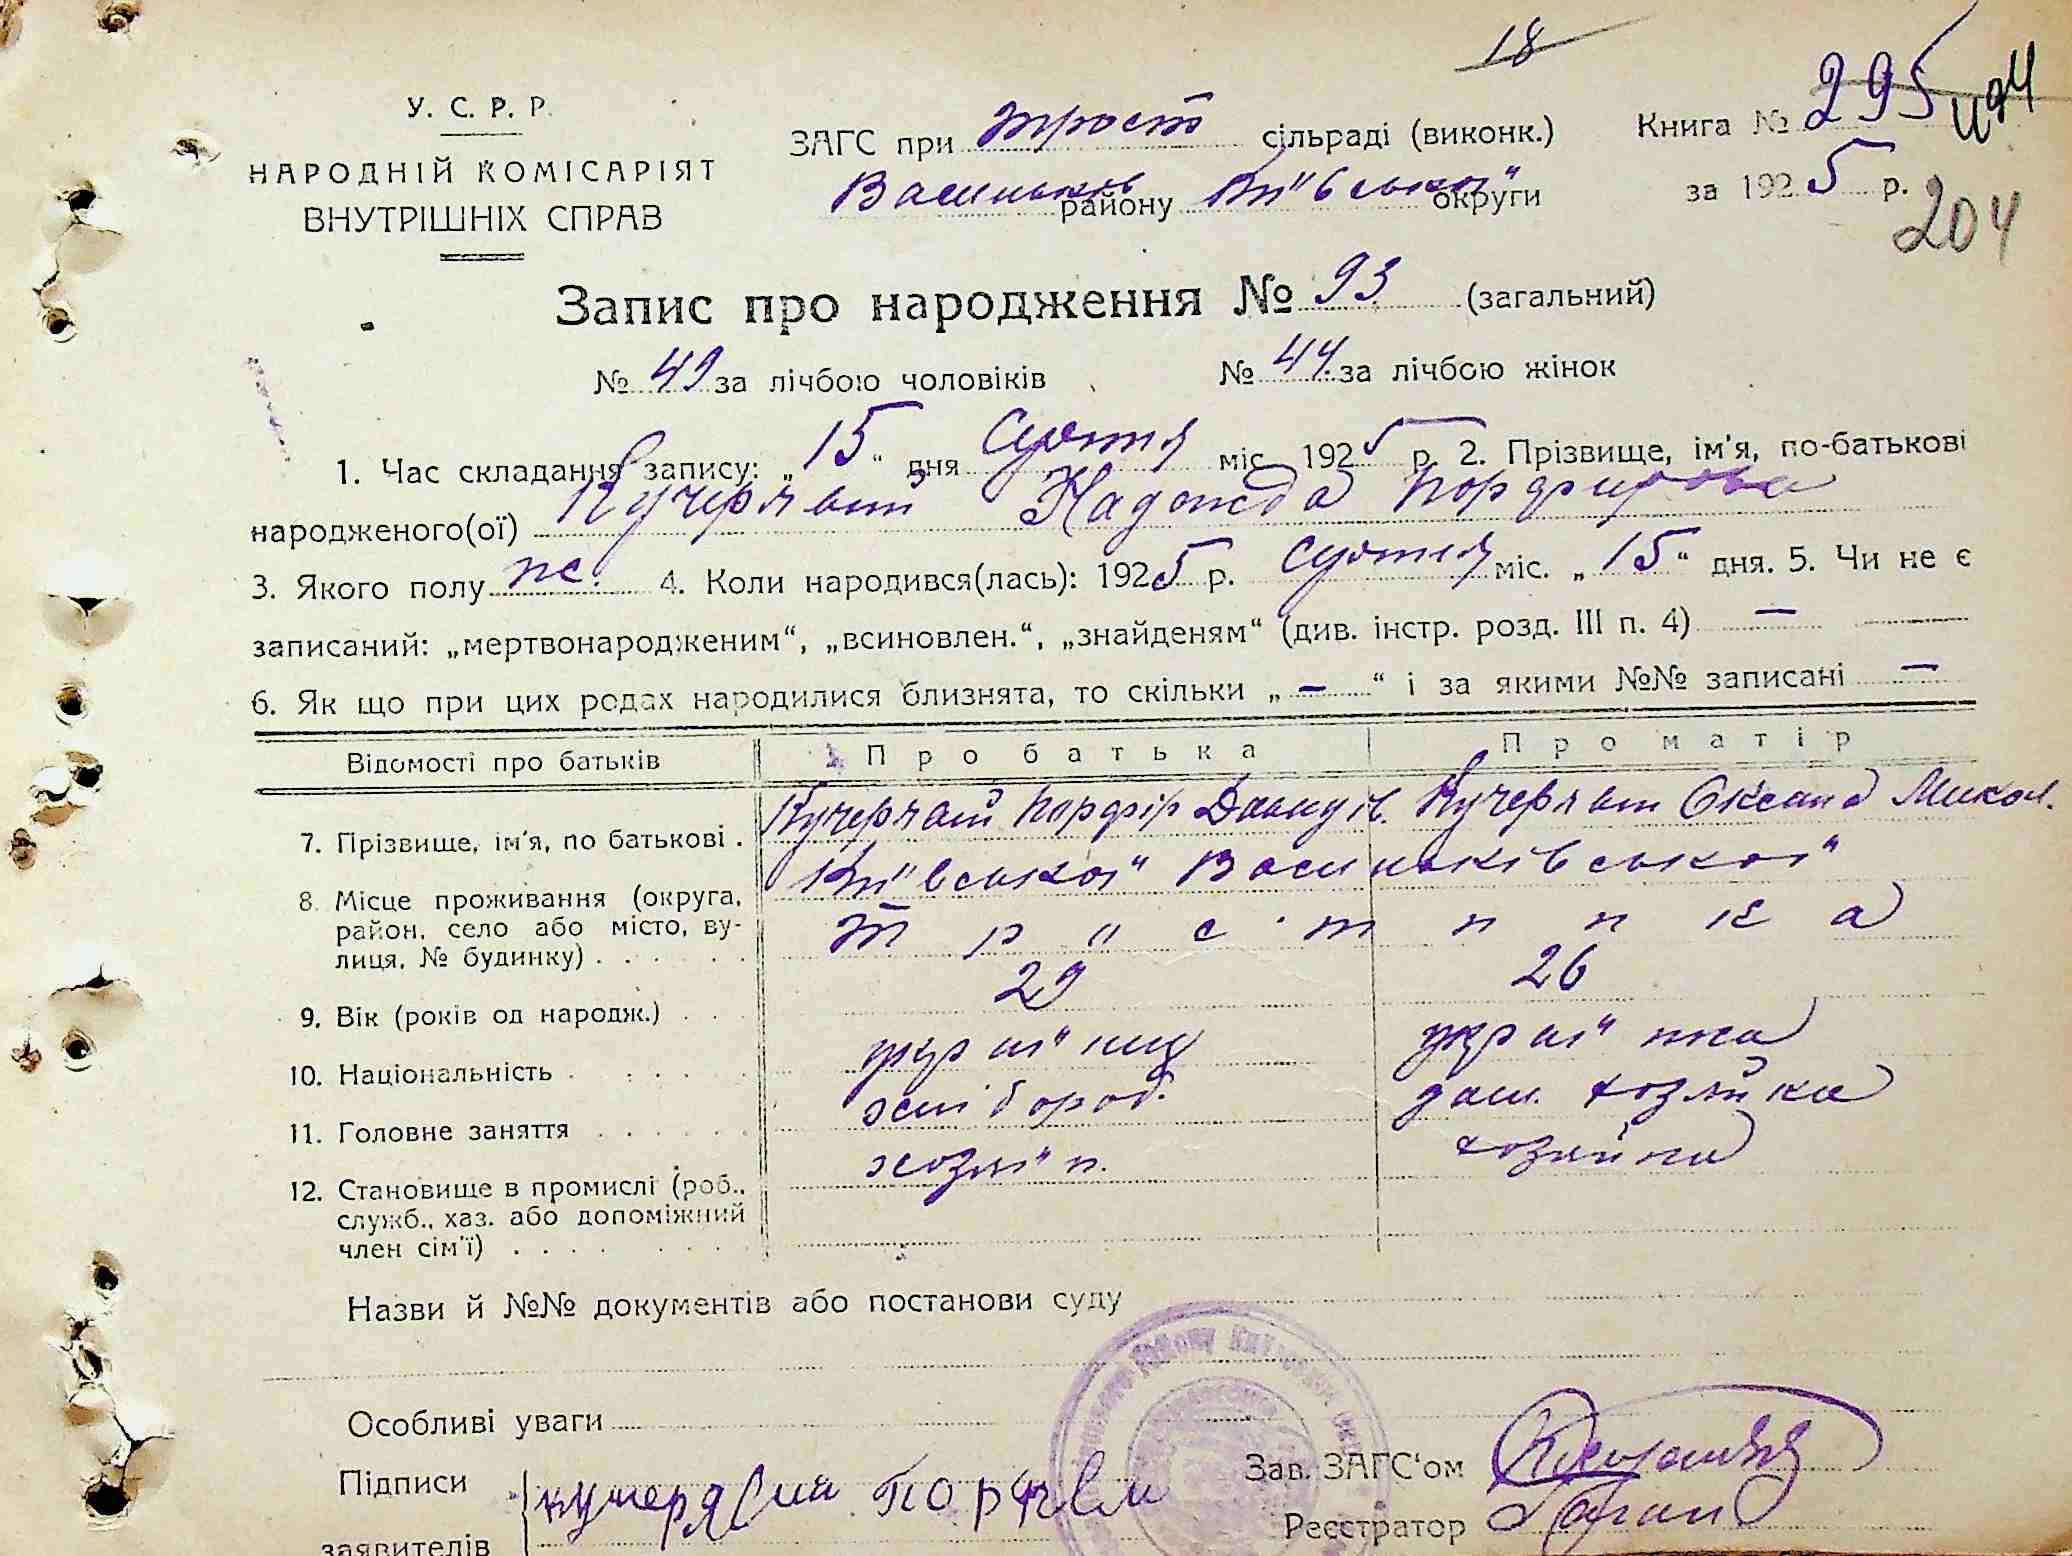 18
У. С. Р. Р.
НАРОДНІЙ КОМІСАРІЯТ
ВНУТРІШНІХ СПРАВ
ЗАГС при Трост сільраді (виконк.)
Васильків району Київської округи
Книга № 295
за 1925 р.
204
Запис про народження № 93 (загальний)
№ 49 за лічбою чоловіків № 44 за лічбою жінок
1. Час складання запису: „15“ дня Серпня міс. 1925 р. 2. Прізвище, ім'я, по-батькові
народженого(ої) Кучерявий Надежда Порфирова
3. Якого полу жс. 4. Коли народився(лась): 1925 р. Серпня міс. „15“ дня. 5. Чи не є
записаний: „мертвонародженим“, „всиновлен.“, „знайденям“ (див. інстр. розд. III п. 4) —
6. Як що при цих родах народилися близнята, то скільки „—“ і за якими №№ записані —
Відомості про батьків Про батька Про матір
7. Прізвище, ім'я, по батькові . Кучерявий Порфір Кучеряви Оксана Микол.
8. Місце проживання (округа, Київської Васильківської
район, село або місто, ву-
лиця, № будинку) . . . . . Тростинка
9. Вік (років од народж.) . . . 29 26
10. Національність . . . . . українц українка
11. Головне заняття . . . . . хлібороб. дом. хозяйка
12. Становище в промислі (роб., хозяїн. хозяйка
служб., хаз. або допоміжний
член сім'ї) . . . .
Назви й №№ документів або постанови суду
Особливі уваги
Підписи
заявителів
Кучерявий Порфiли
Зав. ЗАГС‘ом
Реєстратор